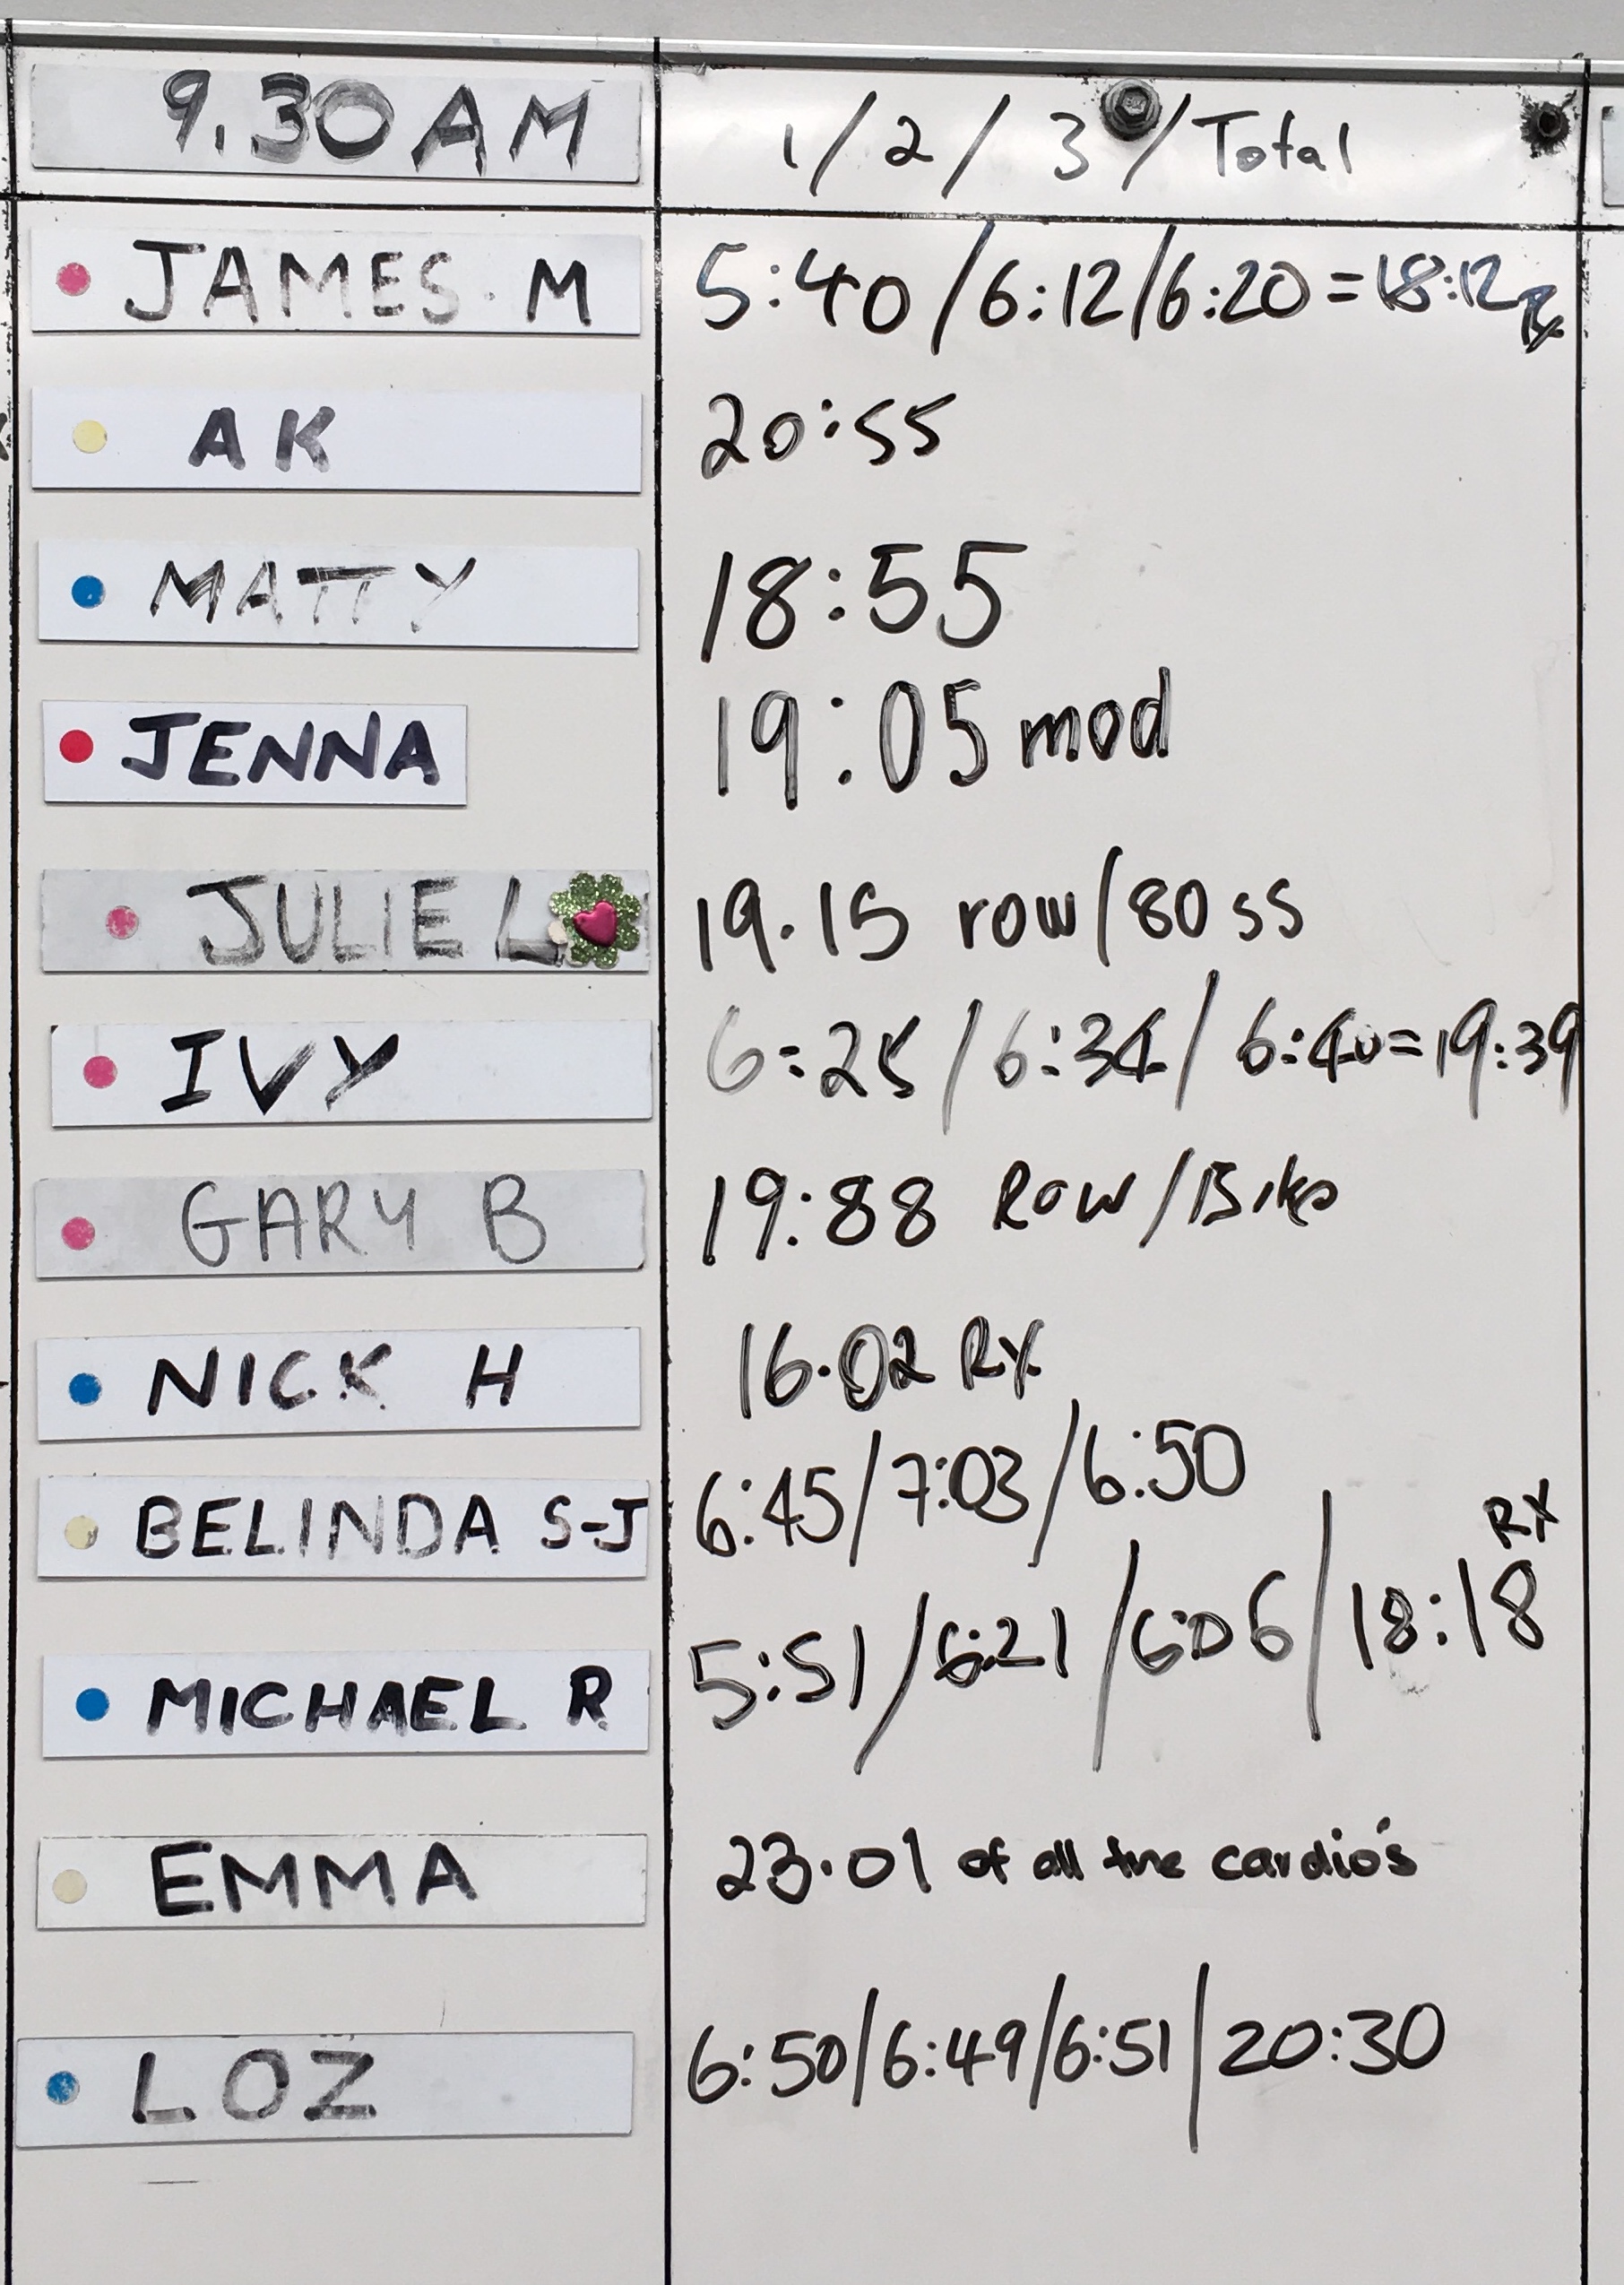 9.30 AM 1/2/3/Total
JAMES. M 5:40/6:12/6:20=18:12 Rx
AK 20:55
MATTY 18:55
JENNA 19:05 mod
JULIE L 19.15 row/80 ss
IVY 6:25/6:34/6:40=19:39
GARY B 19:88 Row/Bike
NICK H 16.02 RX
BELINDA S-J 6:45/7:03/6:50
MICHAEL R 5:51/6:21/6:06/18:18 RX
EMMA 23.01 of all the cardio's
LOZ 6:50/6:49/6:51/20:30